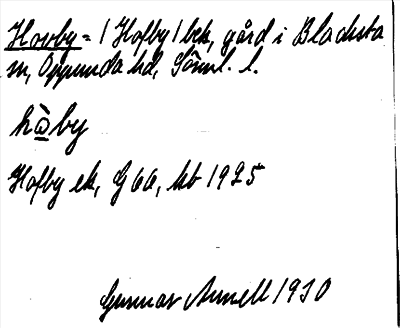 Hovby = (Hofby) bek, gård i Blacksta
sn, Oppunda hd, Söml. l.
hå̀by
Hofby ek, G 66, kb 1925
Gunnar Annell 1930